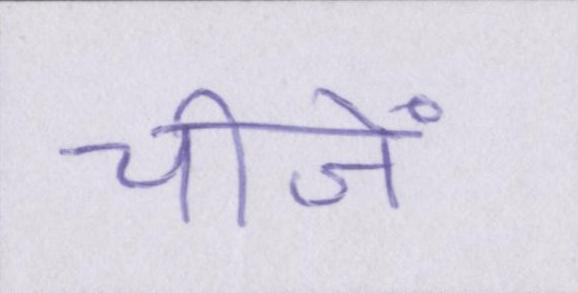 चीजें